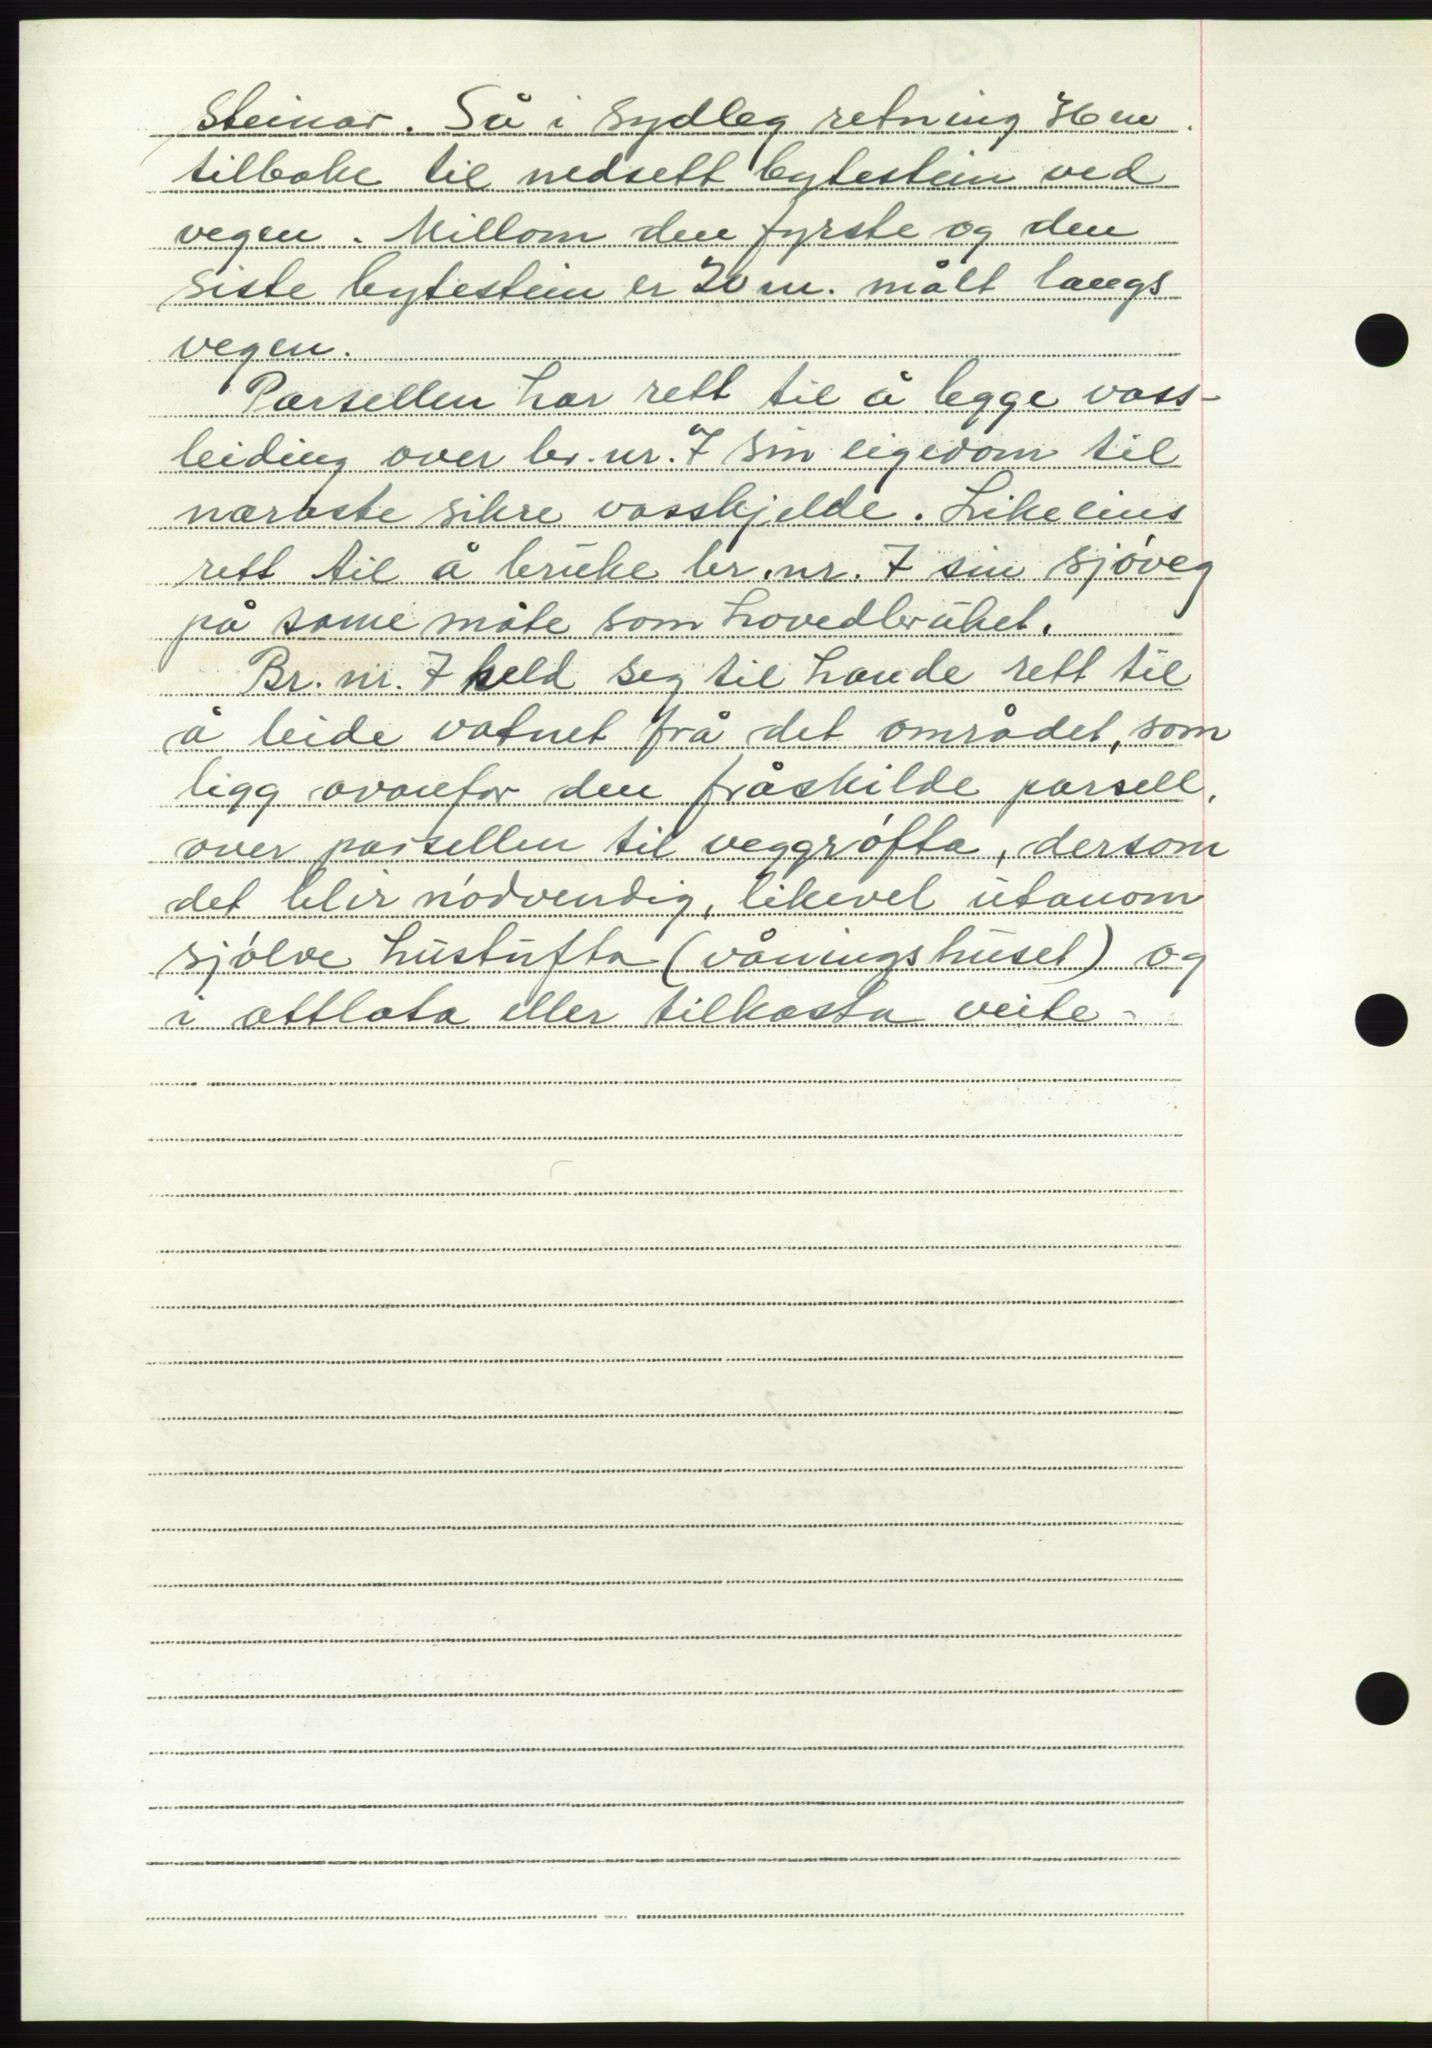 Steinar. Så i sydleg retning 36 m
tilbake til nedsett bytestein ved
vegen. Millom den fyrste og den
siste bytestein er 20 m. målt langs
vegen.
Parsellen har rett til å legge vass-
leiding over br.nr. 7 sin eigedom til
næraste sikre vasskjelde. Likeeins
rett til å bruke br.nr. 7 sin sjöveg
på same måte som hovedbruket.
Br. nr. 7 held seg til hande rett til
å leide vatnet frå det området, som
ligg ovanfor den fråskilde parsell,
over parsellen til veggröfta, dersom
det blir nödvendig, likevel utanom
sjölve hustufta (våningshuset) og
i attlata eller tilkasta veite -